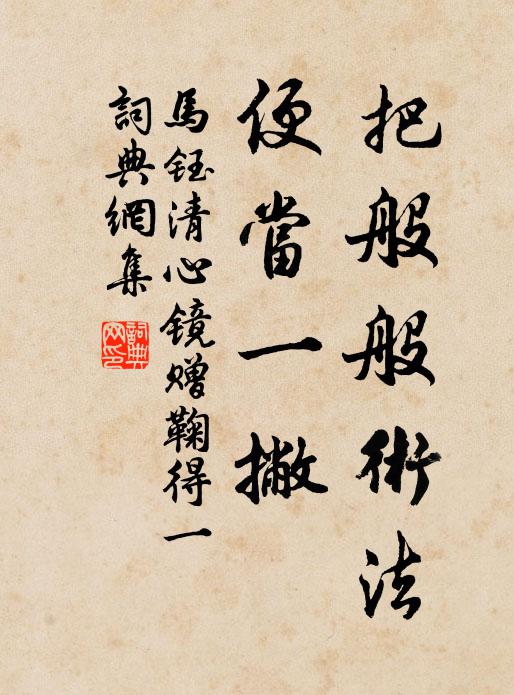 把般般術法
便當一撇
馬鈺清心镜赠鞠得一
詞典網集
詞典网印